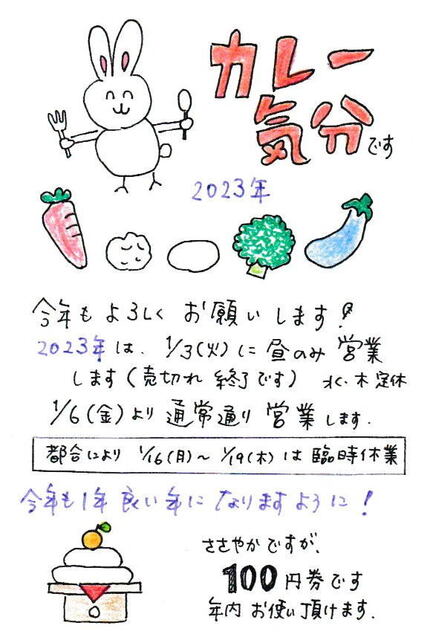 カレー
気分です
2023年
今年もよろしくお願いします!
2023年は、1/3(火)に昼のみ営業
します(売切れ終了です) 水・木定休
1/6(金)より通常通り営業します.
都合により 1/16(月)〜1/19(木)は臨時休業
今年も1年良い年になりますように!
ささやかですが、
100円券です
年内お使い頂けます.